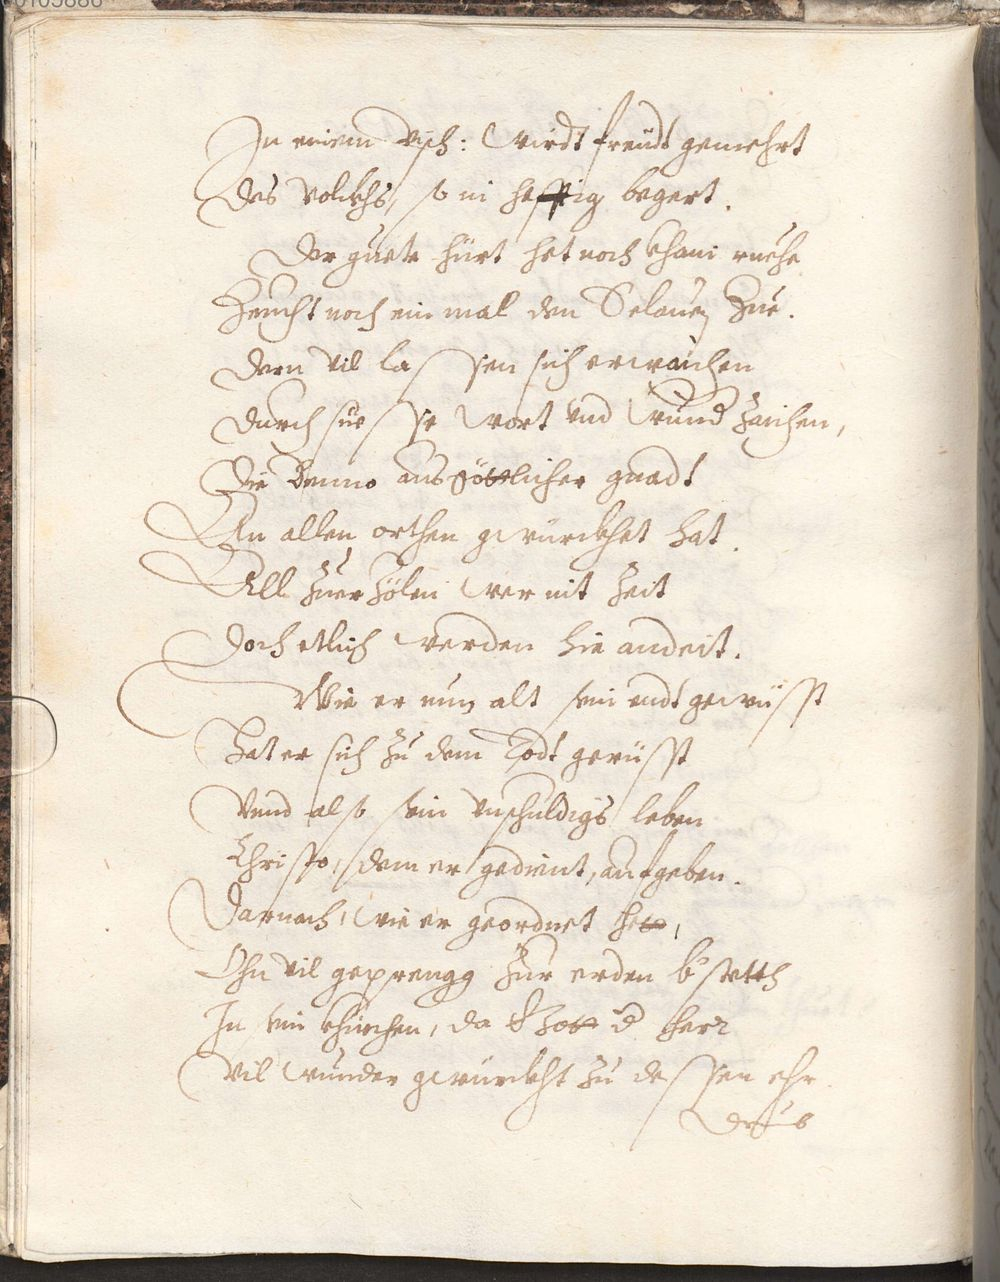 In einem visch: Wirdt freüdt gemehrt
Des volckhs, so in hefftig begert.
Der guete hürt het noch khain ruehe
Zeucht noch ein mal den Selauen zue.
Dern vil lassen sich erwaichen
Durch süesse Wort vnd Wund Zaichen,
Die Benno aus göttlicher gnadt
An allen orthen gewürckhet hat.
All zuer zölen Wer nit Zeit
Doch etlich Werden hie andeit.
Wie er nun alt sein endt gewüsst
Hat er sich zu dem Todt gerüsst
Vnnd also sein vnschuldigs leben
Christo, dem er gedient, aufgeben.
Darnach, Wie er geordnet het,
Ohn vil geprengg zur erden bstetth
In sein khürchen, da Gott d herr
Vil Wunder gewürckht zu dessen ehr.